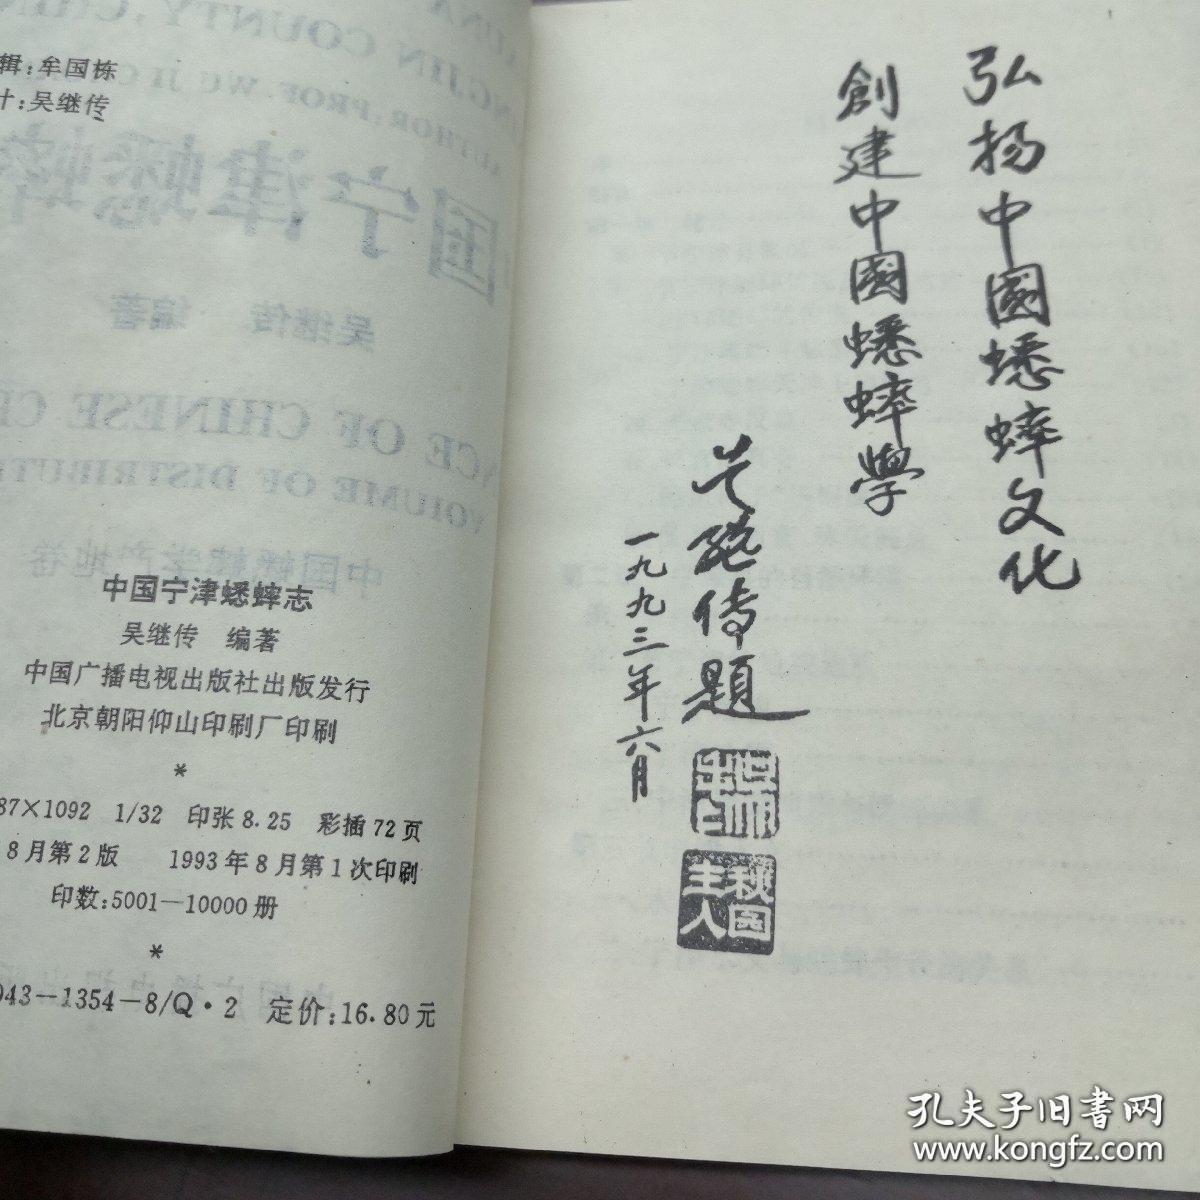 辑:牟国栋
计:吴继传
中国宁津蟋蟀志
吴继传 编著
中国广播电视出版社出版发行
北京朝阳仰山印刷厂印刷
*
87×1092 1/32 印张8.25 彩插72页
8月第2版 1993年8月第1次印刷
印数:5001—10000册
*
043—1354—8/Q·2 定价:16.80元
弘扬中國蟋蟀文化
創建中國蟋蟀學
吴继传題
一九九三年六月
秋园
主人
孔夫子旧书网
www.kongfz.com